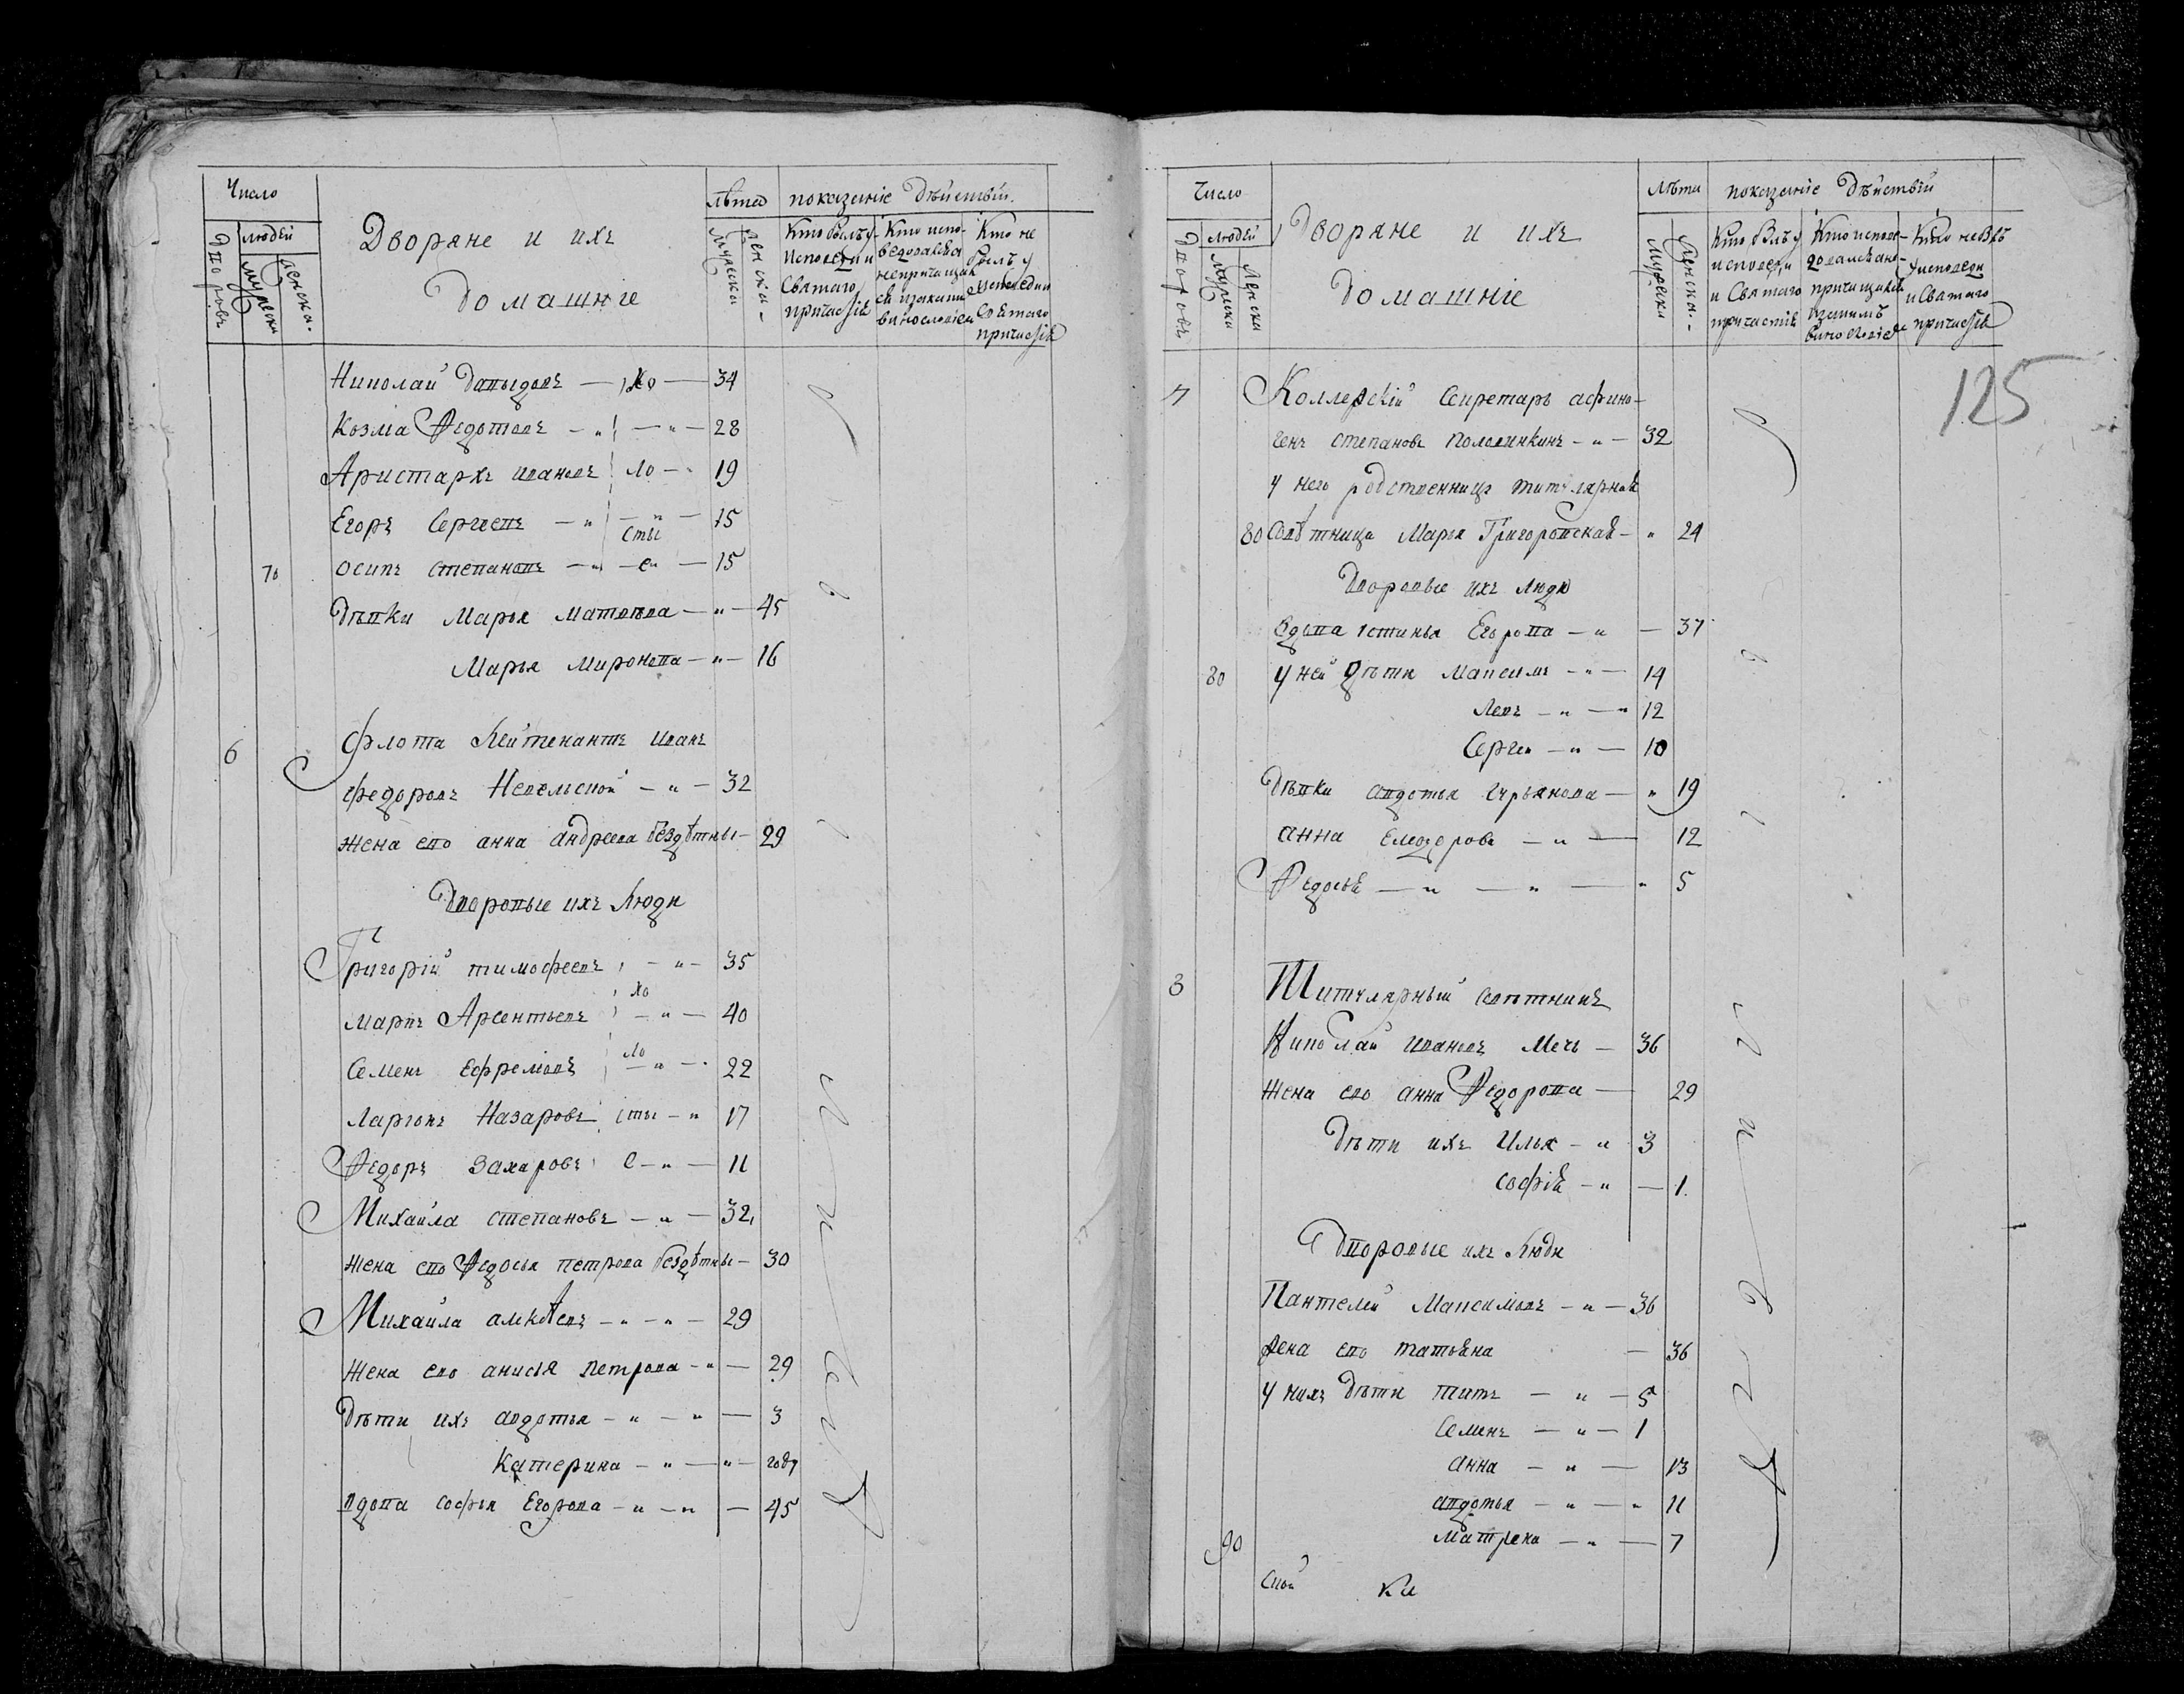 Число
людей
дворовъ
мужеска
женска
Дворяне и ихъ
домашніе
лѣта
мужеска
женска
показаніе дѣйствій.
Кто былъ у исповеди и Святаго причастія
Кто исповедовался а не причащался и за какимъ винословіемъ
Кто не былъ у исповеди и Святаго причастія
Николай Давыдовъ — хо — 34
Козма Ѳедотовъ — „ — „ — 28
Аристархъ Ивановъ ло — 19
Егоръ Сергеевъ — „ — „ — 15
сты
70 Осипъ Степановъ — „ — е„ — 15
Дѣвки Марья Матвѣева — „ — 45
Марья Миронова — „ — 16
6 Флота Лейтенантъ Иванъ
Федоровъ Невельской — „ — 32
жена ево Анна Андреева бездѣтны — 29
Дворовые ихъ Люди
Григорій Тимофеевъ — „ — 35
хо
Маркъ Арсентьевъ — „ — 40
ло
Семенъ Ефремовъ — „ — 22
Ларіонъ Назаровъ сты — „ 17
Ѳедоръ Захаровъ е — „ — 11
Михаила Степановъ — „ — 32
жена ево Ѳедосья Петрова бездѣтны — 30
Михаила Алкѣевъ — „ — „ — 29
жена ево Анисья Петрова — „ — 29
Дѣти ихъ Авдотья — „ — „ — 3
Катерина — „ — „ — году
вдова Софья Егорова — „ — „ — 45
Число
людей
дворовъ
мужеска
женска
Дворяне и ихъ
домашніе
лѣта
мужеска
женска
показаніе дѣйствій
Кто былъ у исповеди и Святаго причастія
Кто исповедовался а не причащался и за какимъ винословіемъ
Кто не былъ у исповеди и Святаго причастія
125
7 Коллежскій Секретарь Афино-
генъ Степановъ Половинкинъ — „ — 32
у него родственница титулярная
80 Совѣтница Марья Григоровская — „ 24
Дворовые ихъ люди
Вдова Устинья Егорова — „ — 37
80 у ней дѣти Максимъ — „ — 14
Левъ — „ — „ 12
Сергеи — „ — 10
Дѣвки Авдотья Гурьянова — „ 19
Анна — „ — 12
Ѳедосья — „ — „ — „ 5
8 Титулярный Совѣтникъ
Николай Ивановъ Мечь — 36
жена ево Анна Ѳедорова — 29
Дѣти ихъ Илья — „ 3
Софія — „ — 1.
Дворовые ихъ Люди
Пантелей Максимовъ — „ — 36
жена ево Татьяна — 36
у нихъ Дѣти Титъ — „ — 5
Семенъ — „ — 1
Анна — „ — 13
Авдотья — „ — „ 11
90 Матрена — „ — 7
ской ки